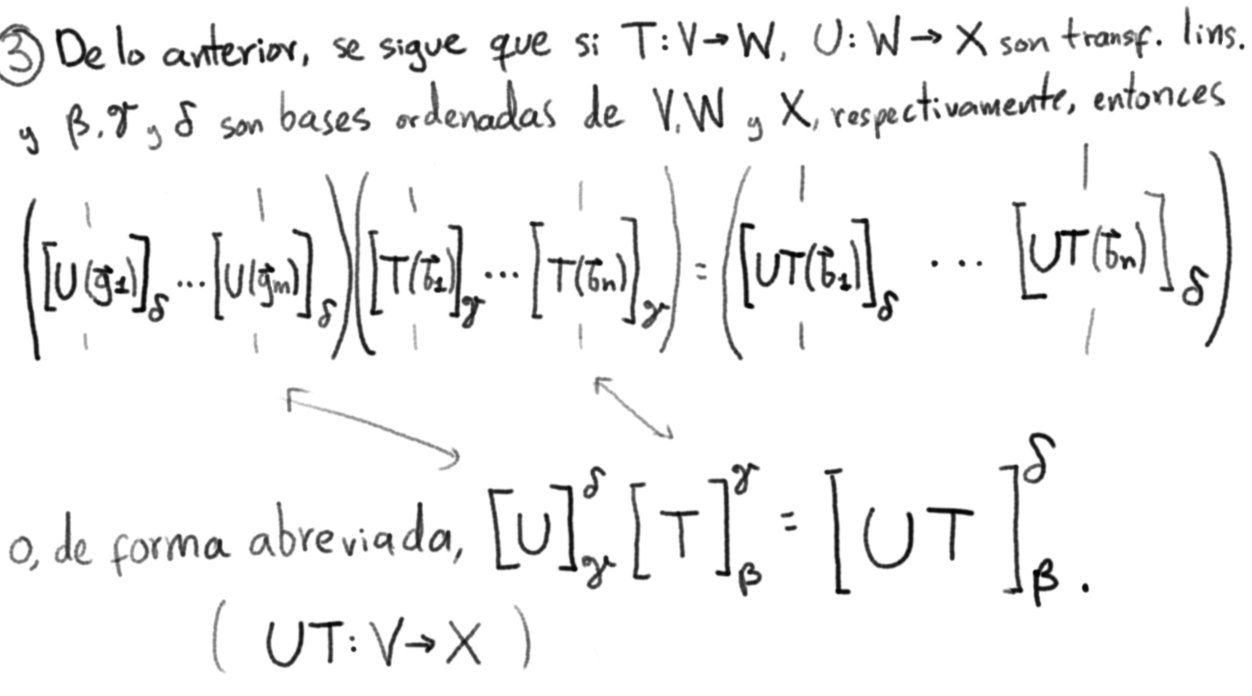 ③ De lo anterior, se sigue que si T: V → W, U: W → X son transf. lins.
y β, γ y δ son bases ordenadas de V, W y X, respectivamente, entonces
([U(g⃗1)]δ ... [U(g⃗m)]δ)([T(b⃗1)]γ ... [T(b⃗n)]γ) = ([UT(b⃗1)]δ ... [UT(b⃗n)]δ)
o, de forma abreviada, [U]γ^δ [T]β^γ = [UT]β^δ.
(UT: V → X)